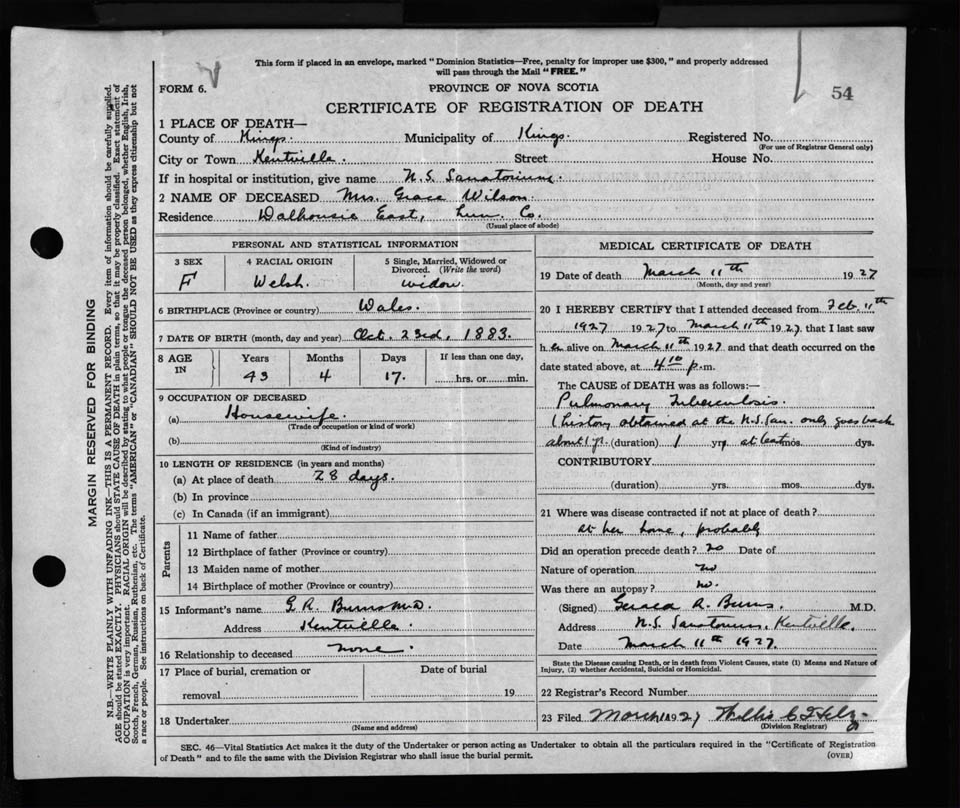 This form if placed in an envelope, marked "Dominion Statistics—Free, penalty for improper use $300," and properly addressed
will pass through the Mail "FREE."
FORM 6.
PROVINCE OF NOVA SCOTIA
54
CERTIFICATE OF REGISTRATION OF DEATH
1 PLACE OF DEATH—
County of Kings. Municipality of Kings. Registered No.
(For use of Registrar General only)
City or Town Kentville. Street House No.
If in hospital or institution, give name N.S. Sanatorium.
2 NAME OF DECEASED Mrs. Grace Wilson.
Residence Dalhousie East, Lun. Co.
(Usual place of abode)
PERSONAL AND STATISTICAL INFORMATION
3 SEX 4 RACIAL ORIGIN 5 Single, Married, Widowed or
Divorced. (Write the word)
F Welsh. widow.
6 BIRTHPLACE (Province or country) Wales.
7 DATE OF BIRTH (month, day and year) Oct. 23rd, 1883.
8 AGE IN Years Months Days If less than one day,
43 4 17. hrs. or min.
9 OCCUPATION OF DECEASED
(a) Housewife.
(Trade or occupation or kind of work)
(b)
(Kind of industry)
10 LENGTH OF RESIDENCE (in years and months)
(a) At place of death 28 days.
(b) In province
(c) In Canada (if an immigrant)
Parents
11 Name of father
12 Birthplace of father (Province or country)
13 Maiden name of mother
14 Birthplace of mother (Province or country)
15 Informant's name G.R. Burns M.D.
Address Kentville.
16 Relationship to deceased none.
17 Place of burial, cremation or Date of burial
removal 19
18 Undertaker
(Name and address)
MEDICAL CERTIFICATE OF DEATH
19 Date of death March 11th 1927
(Month, day and year)
20 I HEREBY CERTIFY that I attended deceased from Feb. 11th
1927 1927 to March 11th 1927, that I last saw
her alive on March 11th 1927 and that death occurred on the
date stated above, at 4 10 p.m.
The CAUSE of DEATH was as follows:—
Pulmonary Tuberculosis.
(history obtained at the N.S. San. only goes back
about 1 yr. (duration) 1 yrs at least mos. dys.
CONTRIBUTORY
(duration) yrs. mos. dys.
21 Where was disease contracted if not at place of death?
at her home, probably
Did an operation precede death? no Date of
Nature of operation no
Was there an autopsy? no.
(Signed) Gerald R. Burns. M.D.
Address N.S. Sanatorium, Kentville.
Date March 11th 1927.
State the Disease causing Death, or in death from Violent Causes, state (1) Means and Nature of
Injury, (2) whether Accidental, Suicidal or Homicidal.
22 Registrar's Record Number
23 Filed March 1927
(Division Registrar)
SEC. 46—Vital Statistics Act makes it the duty of the Undertaker or person acting as Undertaker to obtain all the particulars required in the "Certificate of Registration
of Death" and to file the same with the Division Registrar who shall issue the burial permit.
(OVER)
MARGIN RESERVED FOR BINDING
N.B.—WRITE PLAINLY WITH UNFADING INK—THIS IS A PERMANENT RECORD. Every item of information should be carefully supplied.
AGE should be stated EXACTLY. PHYSICIANS should STATE CAUSE OF DEATH in plain terms, so that it may be properly classified. Exact statement of
OCCUPATION is very important. RACIAL ORIGIN will be described by stating to what people or tongue the deceased person belonged, whether English, Irish,
Scotch, French, German, Russian, Ruthenian, etc. The terms "AMERICAN" "CANADIAN" SHOULD NOT BE USED as they express citizenship but not
a race or people. See instructions on back of Certificate.